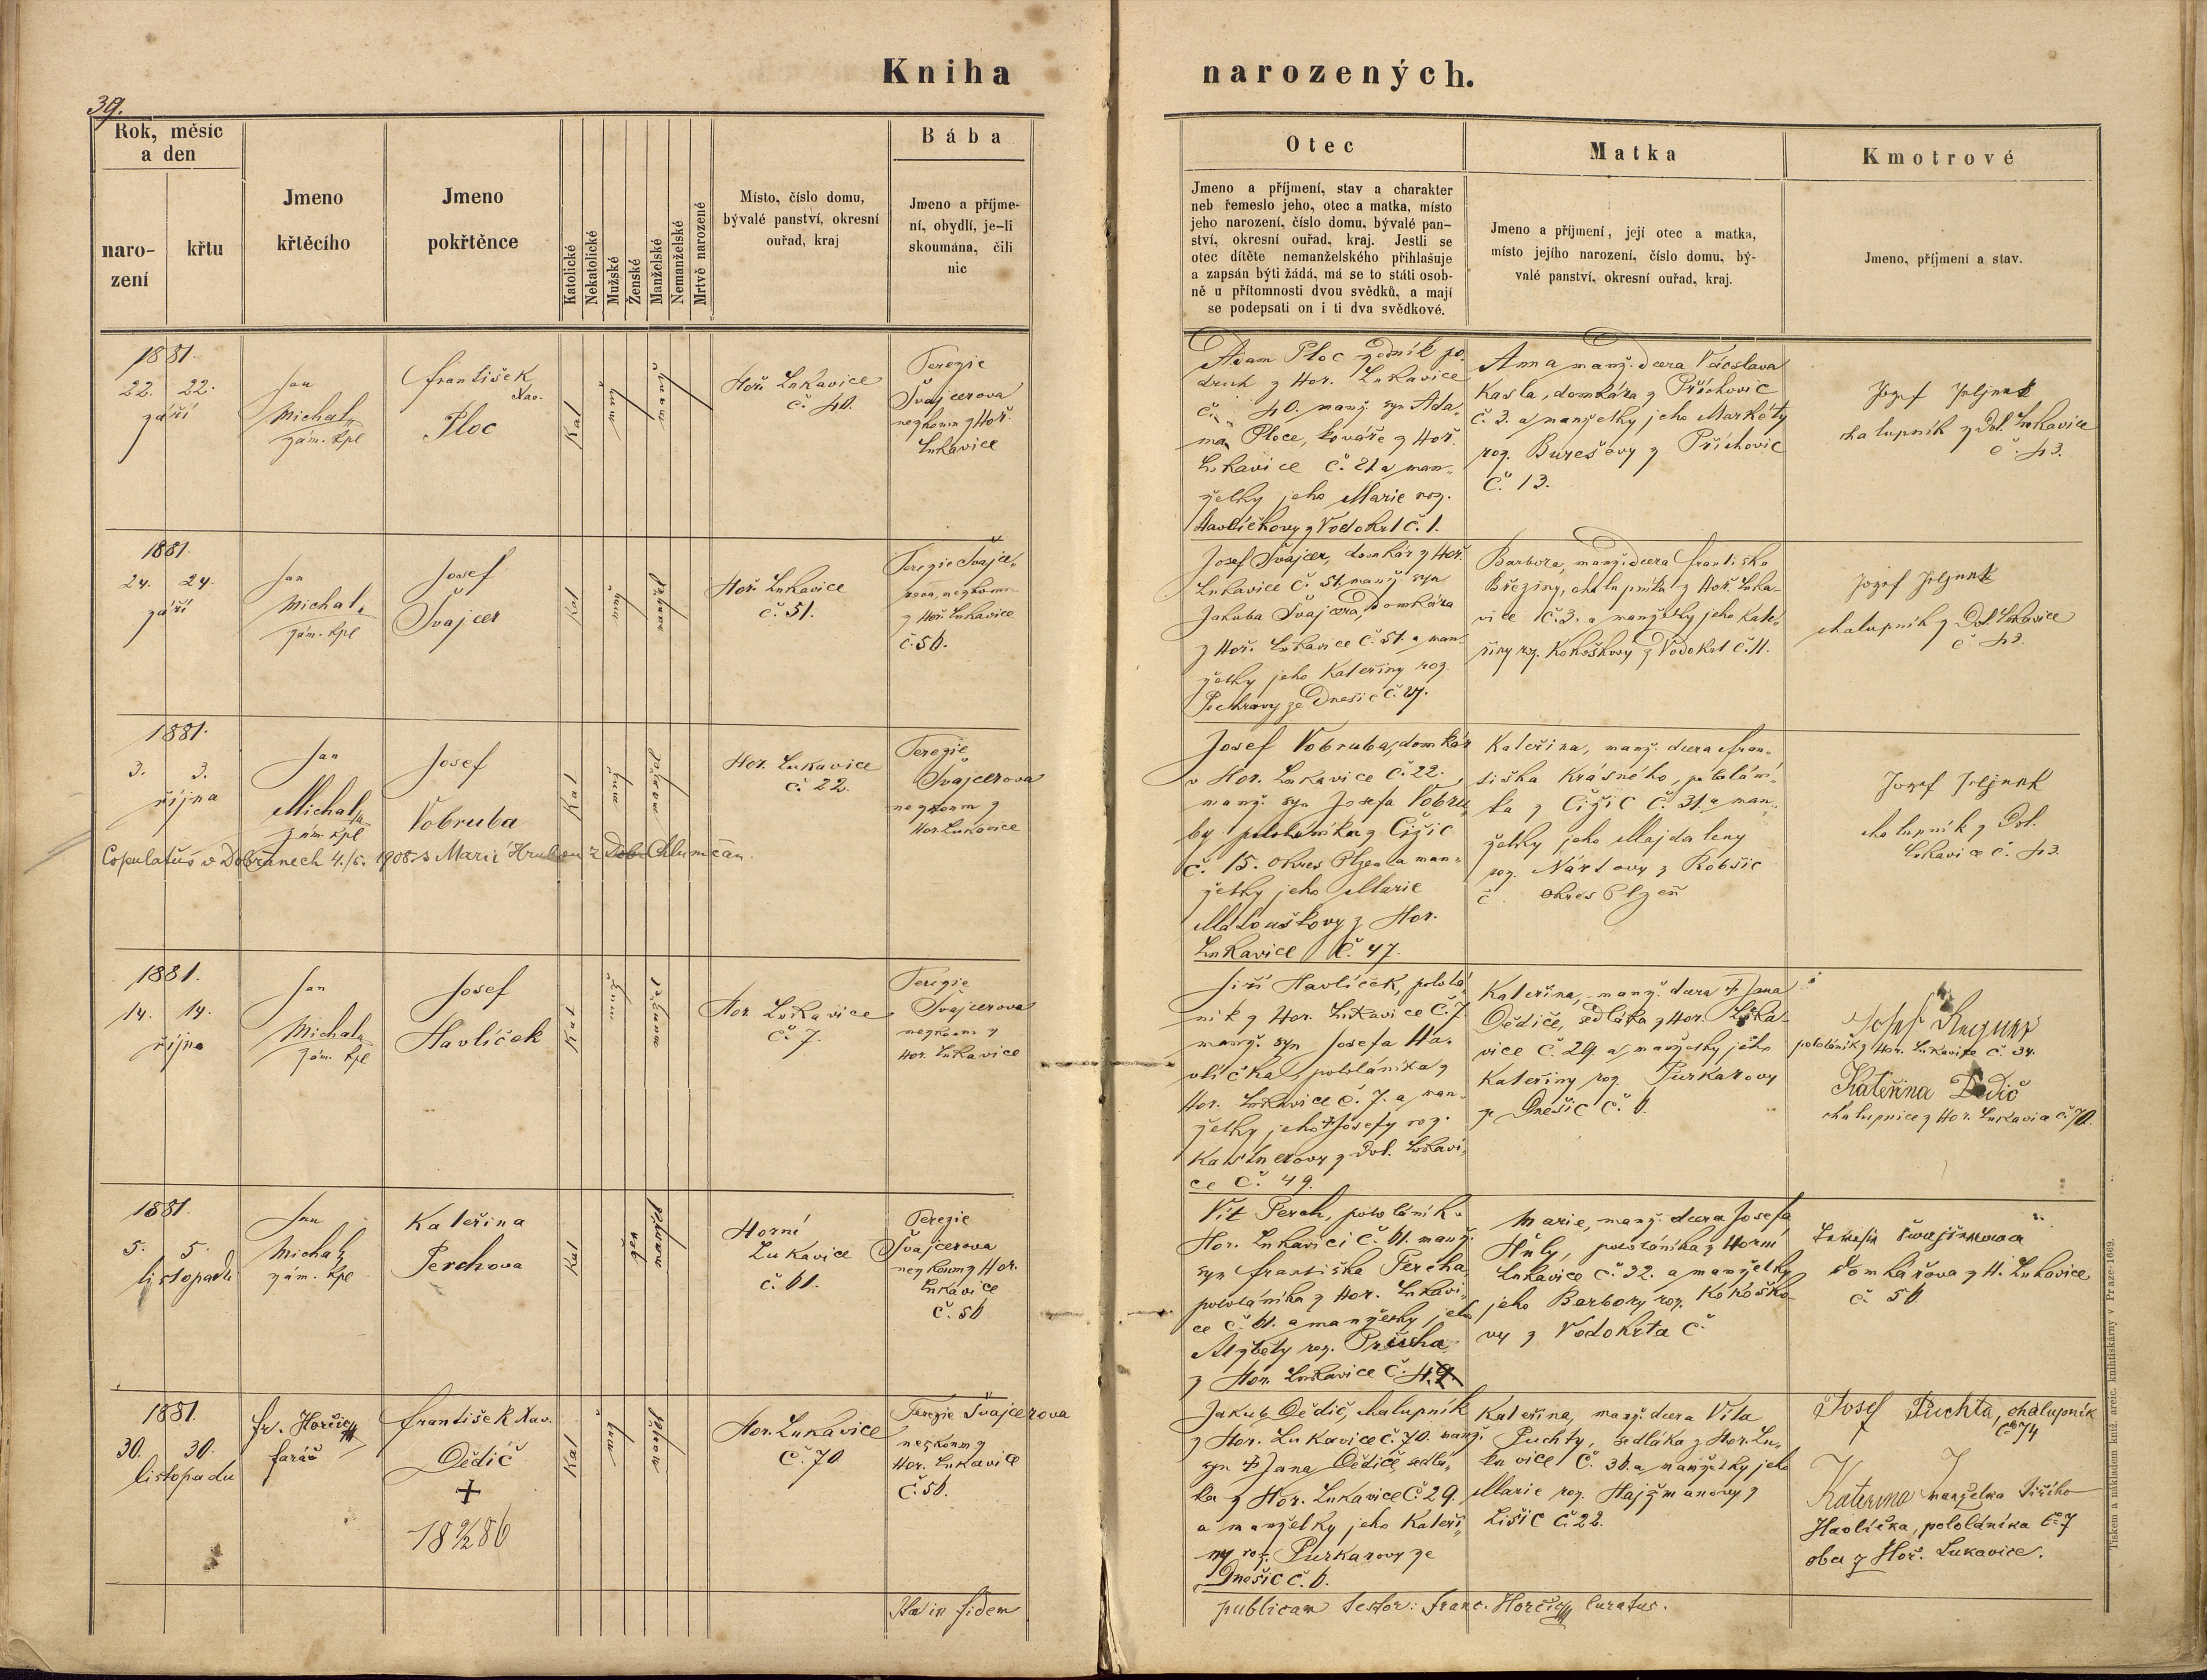 Kniha narozených.
39.
Rok, měsíc
a den
naro-
zení
křtu
Jmeno
křtěcího
Jmeno
pokřtěnce
Katolické
Nekatolické
Mužské
Ženské
Manželské
Nemanželské
Mrtvě narozené
Místo, číslo domu,
bývalé panství, okresní
ouřad, kraj
Bába
Jmeno a příjme-
ní, obydlí, je-li
skoumána, čili
nic
Otec
Jmeno a příjmení, stav a charakter
neb řemeslo jeho, otec a matka, místo
jeho narození, číslo domu, bývalé pan-
ství, okresní ouřad, kraj. Jestli se
otec dítěte nemanželského přihlašuje
a zapsán býti žádá, má se to státi osob-
ně u přítomnosti dvou svědků, a mají
se podepsati on i ti dva svědkové.
Matka
Jmeno a příjmení, její otec a matka,
místo jejího narození, číslo domu, bý-
valé panství, okresní ouřad, kraj.
Kmotrové
Jmeno, příjmení a stav.
1881.
22. 22.
září
Jan
Michal
zám. kpl
František
Xav.
Ploc
Kat
Hoř. Lukavice
č. 40.
Terezie
Švajcerova
nezkoum z Hoř.
Lukavice
Adam Ploc zedník po-
druh z Hor. Lukavice
č. 40. manž. syn Ada-
ma Ploce, kováře z Hoř.
Lukavice č. 21 a man-
želky jeho Marie roz.
Havlíčkovy z Vodokrt č. 1.
Anna manž. dcera Václava
Kasla, domkáře z Příchovic
č. 3. a manželky jeho Markéty
roz. Burešovy z Příchovic
č. 13.
Jozef Jeljnek
chalupník z Dol. Lukavice
č. 43.
1881.
24. 24.
září
Jan
Michal
zám. kpl
Josef
Švajcer
Kat
Hoř. Lukavice
č. 51.
Terezie Švajce-
rova, nezkoum
z Hoř. Lukavice
č. 56.
Josef Švajcer, domkář z Hoř.
Lukavice č. 51. manž. syn
Jakuba Švajcera, domkáře
z Hoř. Lukavice č. 51. a man-
želky jeho Kateřiny roz.
Pechrovy ze Dnešic č. 27.
Barbora, manž. dcera Františka
Březiny, chalupníka z Hoř. Luka-
vice č. 3. a manželky jeho Kate-
řiny roz. Kokoškovy z Vodokrt č. 11.
Jozef Jeljnek
chalupník z Dol Lukavice
č 43.
1881.
3. 3.
října
Jan
Michal
zám. kpl
Josef
Vobruba
Kat
Hor. Lukavice
č. 22.
Terezie
Švajcerova
nezkoum z
Hor. Lukavice
Copulatus v Dobřanech 4./5. 1908 s Marií Hrubou z Chlumčan.
Josef Vobruba, domkář
v Hor. Lukavice č. 22.,
manž. syn Josefa Vobru-
by pololáníka z Čižic
č. 15. okres Plzeň a man-
želky jeho Marie
Matouškovy z Hor.
Lukavice č. 47.
Kateřina, manž. dcera Fran-
tiška Krásného, pololání-
ka z Čižic č. 31. a man-
želky jeho Majdaleny
roz. Nártovy z Robšic
č. okres Plzeň
Jozef Jeljnek
chalupník z Dol.
Lukavice č. 43.
1881.
14. 14.
října
Jan
Michal
zám. kpl
Josef
Havlíček
Kat
Hor. Lukavice
č. 7.
Terezie
Švajcerova
nezkoum z
Hor. Lukavice
Jiří Havlíček, pololá-
ník z Hor. Lukavice č. 7.
manž. syn Josefa Ha-
vlíčka, pololáníka z
Hor. Lukavice č. 7. a man-
želky jeho † Josefy roz.
Kastnerovy z Dol. Lukavi-
ce č. 49.
Kateřina, manž. dcera † Jana
Dědiče, sedláka z Hor. Luka-
vice č. 29. a manželky jeho
Kateřiny roz. Purkarovy
ze Dnešic č. 6.
Josef
pololáník z Hor. Lukavice č. 34.
Kateřina Dědič
chalupnice z Hor. Lukavice č. 70.
1881.
5. 5.
listopadu
Jan
Michal
zám. kpl
Kateřina
Perchova
Kat
Horní
Lukavice
č. 61.
Terezie
Švajcerova
nezkoum z Hor.
Lukavice
č. 56
Vít Perch, pololáník v
Hor. Lukavici č. 61. manž.
syn Františka Percha,
pololáníka z Hor. Lukavi-
ce č. 61. a manželky jeho
Alžběty roz. Průcha
z Hor. Lukavice č. 4.
Marie, manž. dcera Josefa
Hůly, pololáníka z Horní
Lukavice č. 32. a manželky
jeho Barbory roz. Kokoško-
vy z Vodokrta č.
domkářova z H. Lukavice
č. 56.
1881.
30. 30.
listopadu
Fr. Horčic
farář
František Xav.
Dědič
+
18 9/2 86
Kat
Hor. Lukavice
č. 70
Terezie Švajcerova
nezkoum z
Hor. Lukavice
č. 56.
Jakub Dědič, chalupník
z Hor. Lukavice č. 70. manž.
syn † Jana Dědiče, sedlá-
ka z Hor. Lukavice č. 29.
a manželky jeho Kateři-
ny roz. Purkarovy ze
Dnešic č. 6.
Kateřina, manž. dcera Víta
Puchty, sedláka z Hor. Lu-
kavice č. 36. a manželky jeho
Marie roz. Hajšmanovy z
Lišic č. 22.
Josef Puchta, chalupník
č. 74
Kateřina manželka Jiřího
Havlíčka, pololáníka č. 7
oba z Hoř. Lukavice.
Ita in fidem
publicam testor: Franc. Horčic curatus.
Tiskem a nákladem kníž. arcib. knihtiskárny v Praze 1869.